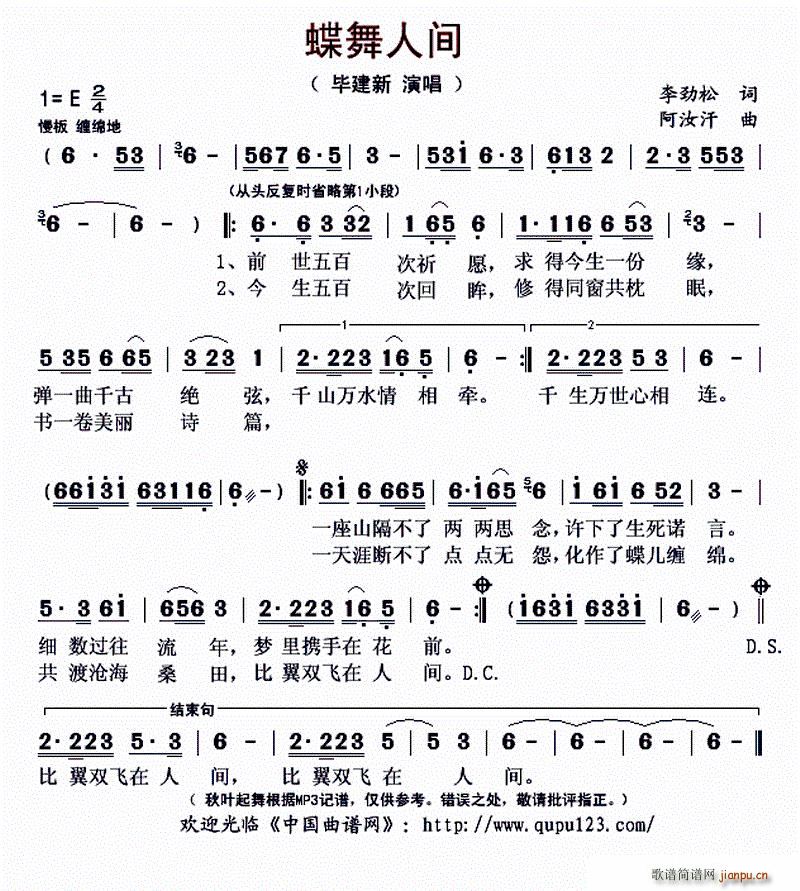 蝶舞人间
( 毕建新 演唱 )
1= E 2/4
李劲松 词
慢板 缠绵地
阿汝汗 曲
( 6 · 53 | 3 6 - | 567 6·5 | 3 - | 53i 6·3 | 613 2 | 2·3 553 |
(从头反复时省略第1小段)
3 6 - | 6 - ) ‖: 6· 6 3 32 | 1 65 6 | 1·116 6 53 | 2 3 - |
1、前 世五百 次祈 愿, 求 得今生一份 缘,
2、今 生五百 次回 眸, 修 得同窗共枕 眠,
1 2
5 35 6 65 | 3 23 1 | 2·223 16 5 | 6 - :‖ 2·223 5 3 | 6 - |
弹一曲千古 绝 弦, 千 山万水情 相 牵。 千 生万世心相 连。
书一卷美丽 诗 篇,
( 66i3i 63116 | 6 - ) ‖: 6i 6 665 | 6·i65 5 6 | i 6i 6 52 | 3 - |
一座山隔不了 两 两思 念, 许下了生死诺 言。
一天涯断不了 点 点无 怨, 化作了蝶儿缠 绵。
5·3 6i | 656 3 | 2·223 16 5 | 6 - :‖ (i63i 633i | 6 -) ‖
细 数过往 流 年, 梦 里携手在 花 前。 D.S.
共 渡沧海 桑 田, 比 翼双飞在 人 间。D.C.
结束句
2·223 5·3 | 6 - | 2·223 5·3 | 5 | 5 3 | 6 - | 6 - | 6 - | 6 - ‖
比 翼双飞在 人 间, 比 翼双飞 在 人 间。
( 秋叶起舞根据MP3记谱,仅供参考。错误之处,敬请批评指正。)
欢迎光临《中国曲谱网》: http://www.qupu123.com/
歌谱简谱网
jianpu.cn